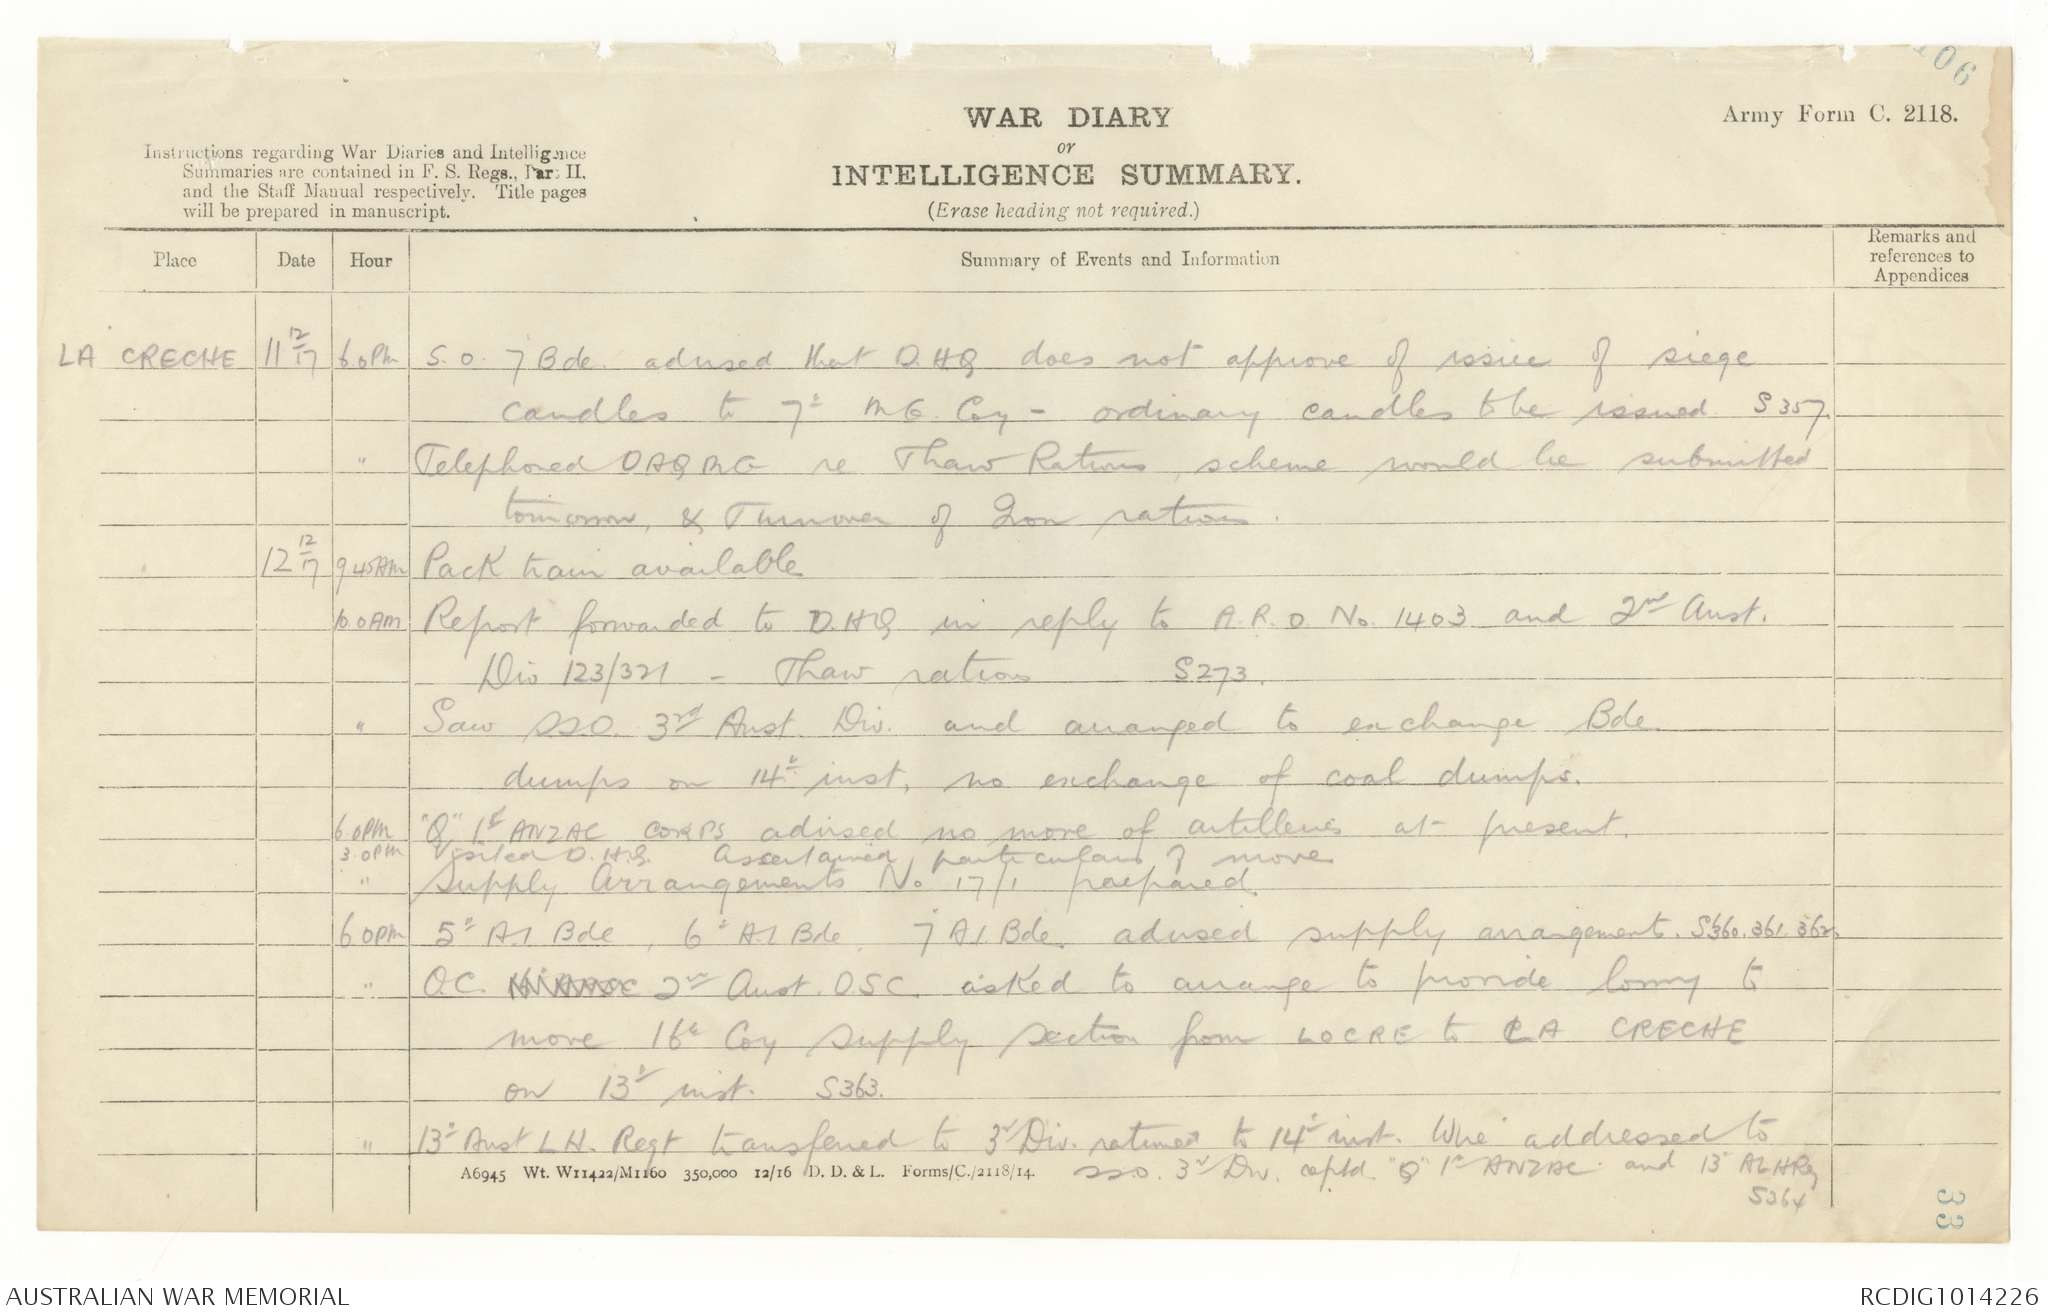 106
WAR DIARY
or
INTELLIGENCE SUMMARY.
(Erase heading not required.)
Army Form C. 2118.
Instructions regarding War Diaries and Intelligence
Summaries are contained in F. S. Regs., Part II.
and the Staff Manual respectively. Title pages
will be prepared in manuscript.
Place Date Hour Summary of Events and Information Remarks and references to Appendices
LA CRECHE 11 12/17 6.0 Pm S.O. 7 Bde. advised that D.HQ does not approve of issue of siege
candles to 7th M.G. Coy - ordinary candles to be issued. S357.
" Telephoned DAQMG re Thaw Rations, scheme would be submitted
tomorrow, & Turnover of Iron rations.
12 12/17 9 45 AM Pack train available
10.0 AM Report forwarded to D.HQ in reply to A.R.O No. 1403 and 2nd Aust.
Div 123/321 - Thaw rations S273.
" Saw SSO. 3rd Aust. Div. and arranged to exchange Bde.
dumps on 14th inst, no exchange of coal dumps.
6.0PM "Q" 1st ANZAC CORPS advised no more of artilleries at present.
3.0PM Visited D.H.Q. Ascertained particulars of move
" Supply Arrangements No 17/1 prepared.
6.0PM 5th A.I. Bde, 6th A.I. Bde, 7 A.I. Bde. advised supply arrangements. S360.361.362.
" O.C. 2nd Aust. DSC. asked to arrange to provide lorry to
move 16th Coy supply section from LOCRE to LA CRECHE
on 13th inst. S363.
" 13th Aust L.H. Regt transferred to 3rd Div. rationed to 14th inst. Wire addressed to
SSO. 3rd Div. reptd. "Q" 1st ANZAC. and 13th ALHRg
S364
A6945 Wt. W11422/M1160 350,000 12/16 D. D. & L. Forms/C./2118/14.
33
AUSTRALIAN WAR MEMORIAL
RCDIG1014226